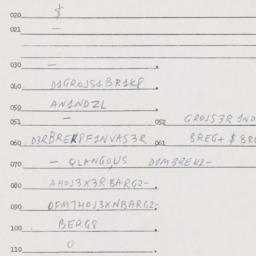 020 $
021 —
030 —
040 D1GROJS1BR1K8
050 AN1NDZL
051 — 052 GROJS3R 1ND
060 D3RBREKPF1NVAS3R 061 BREG+ $ BRE
070 — QLANGQUS D1MBREK2-
080 AHOJ3X3RBARG2-
090 OFM7HOJ3XNBARG2-
100 BERG8
110 0